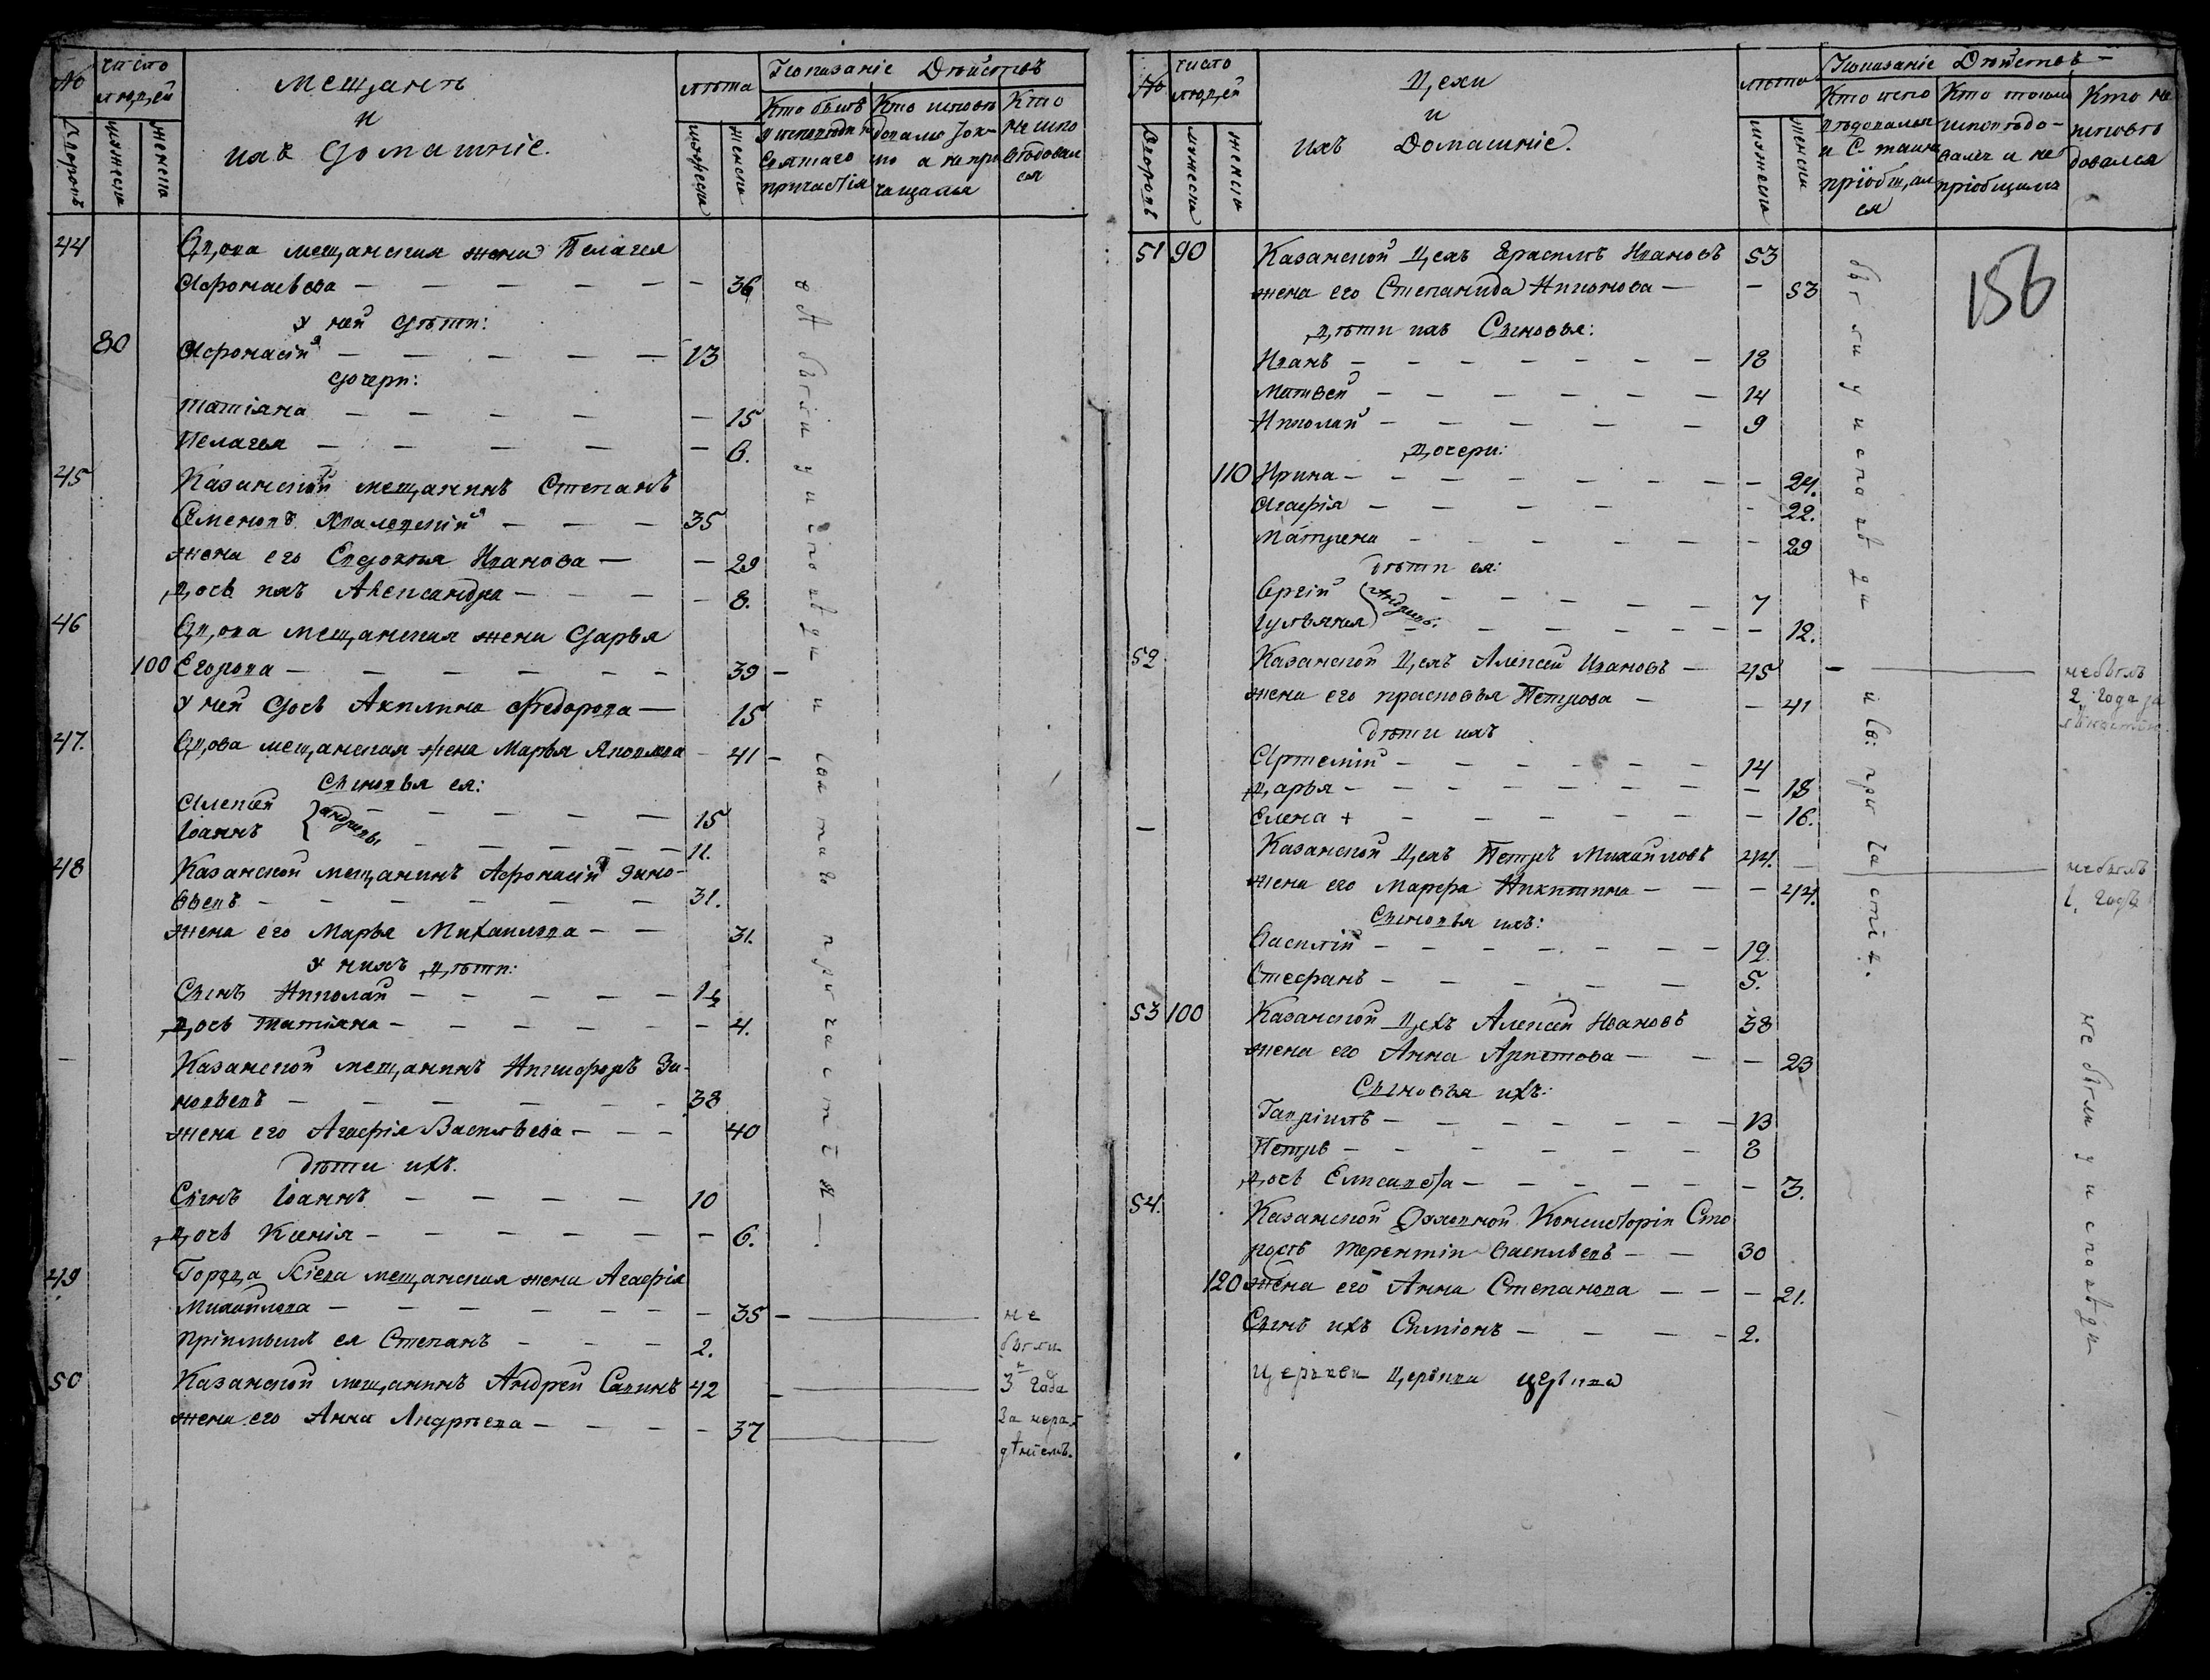 № число людей Мещанъ лѣта Показаніе Дѣйствъ
и
ихъ домашніе.
Дворовъ мужеска женска мужеска женска
Кто былъ у исповѣди и святаго причастія
Кто исповѣдовался токмо а не причащался
Кто не исповѣдовался
44 Вдова мещанская жена Пелагея
Афонасьева — 36
у ней дѣти:
80 Афонасій — 13
дочери:
Татіана — 15
Пелагея — 6.
45 Казанской мещанинъ Степанъ
Семеновъ — 35
жена его Евдокія Иванова — 29
дочь ихъ Александра — 8.
46 Вдова мещанская жена Дарья
100 Егорова — 39 —
у ней дочь Акилина Федорова — 15
47. Вдова мещанская жена Марья Яковлева — 41 —
Сыновья ея:
Алексей — 15
Іоаннъ — 11.
48 Казанской мещанинъ Афонасій Зино-
вьевъ — 31.
жена его Марья Михаилова — 31.
у нихъ дѣти:
Сынъ Николай — 1½
дочь Татіана — 4.
— Казанской мещанинъ Никифоръ Зи-
новьевъ — 38
жена его Агафія Васильева — 40
дѣти ихъ.
Сынъ Іоаннъ — 10
дочь Ксенія — 6.
49 Города Кіева мещанская жена Агафія
Михайлова — 35 — не
пріимышъ ея Степанъ — 2. были
50 Казанской мещанинъ Андрей Савинъ 42 — 3 года
жена его Анна Андрѣева — 37 за нера-
дѣніемъ.
всѣ были у исповѣди и святаго причастія —
№ число людей Цехи лѣта Показаніе Дѣйствъ —
и
ихъ Домашніе.
Дворовъ мужеска женска мужеска женска
Кто исповѣдовался и С. таинъ пріобщался
Кто токмо исповѣдовался и не пріобщился
Кто не исповѣдовался
156
51 90 Казанской Цехъ Ерасимъ Ивановъ 53
жена его Степанида Никонова — 53
дѣти ихъ Сыновья:
Иванъ — 18
Матвей — 14
Николай — 9
дочери:
110 Ирина — 24.
Агафія — 22.
Матрена — 29
дѣти ея:
Сергій — 7
Гульянея — 12.
52 Казанской Цехъ Алексей Ивановъ — 45 — небылъ
жена его прасковья Петрова — 41 2 года за
дѣти ихъ
Артемій — 14
Дарья — 18
Елена + — 16.
— Казанской Цехъ Петръ Михайловъ 44. — небылъ
жена его Марфа Никитина — 44. 1. годъ
Сыновья ихъ:
Василій — 19.
Стефанъ — 5.
53 100 Казанской Цехъ Алексей Ивановъ 38
жена его Анна — 23
Сыновья ихъ:
Гавріилъ — 13
Петръ — 8
дочь Елисавета — 3.
54. Казанской Духовной Консисторіи Сто
рожъ Терентій Васильевъ — 30
120 жена его Анна Степанова — 21.
Сынъ ихъ Симіонъ — 2.
церькви церькви
были у исповѣди и св: причастія.
не были у исповѣди